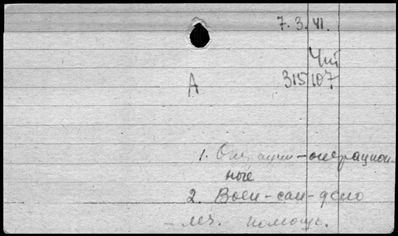 7. 3. VI.
Чит
А 315 107
1. Операции - операцион-
ные
2. Воен-сан-дело
- леч. помощь.